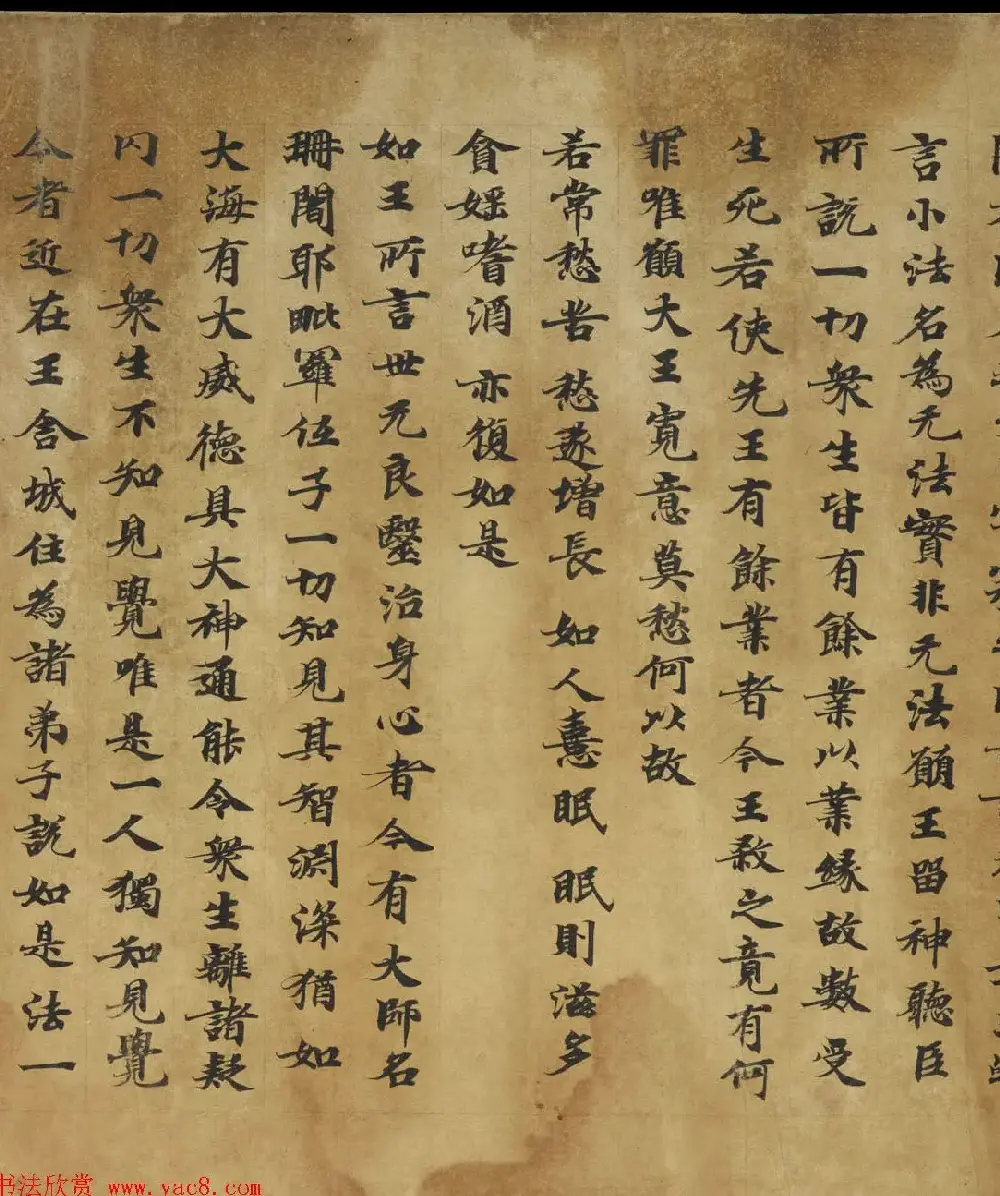 言小法名為无法實非无法願王留神聽臣
所說一切衆生皆有餘業以業緣故數受
生死若使先王有餘業者今王煞之竟有何
罪唯願大王寬意莫愁何以故
若常愁苦 愁遂增長 如人憙眠 眠則滋多
貪婬嗜酒 亦復如是
如王所言世无良毉治身心者今有大師名
珊闍耶毗羅伍子一切知見其智淵深猶如
大海有大威德具大神通能令衆生離諸疑
冈一切衆生不知見覺唯是一人獨知見覺
今者近在王舍城住為諸弟子說如是法一
书法欣赏 www.yac8.com